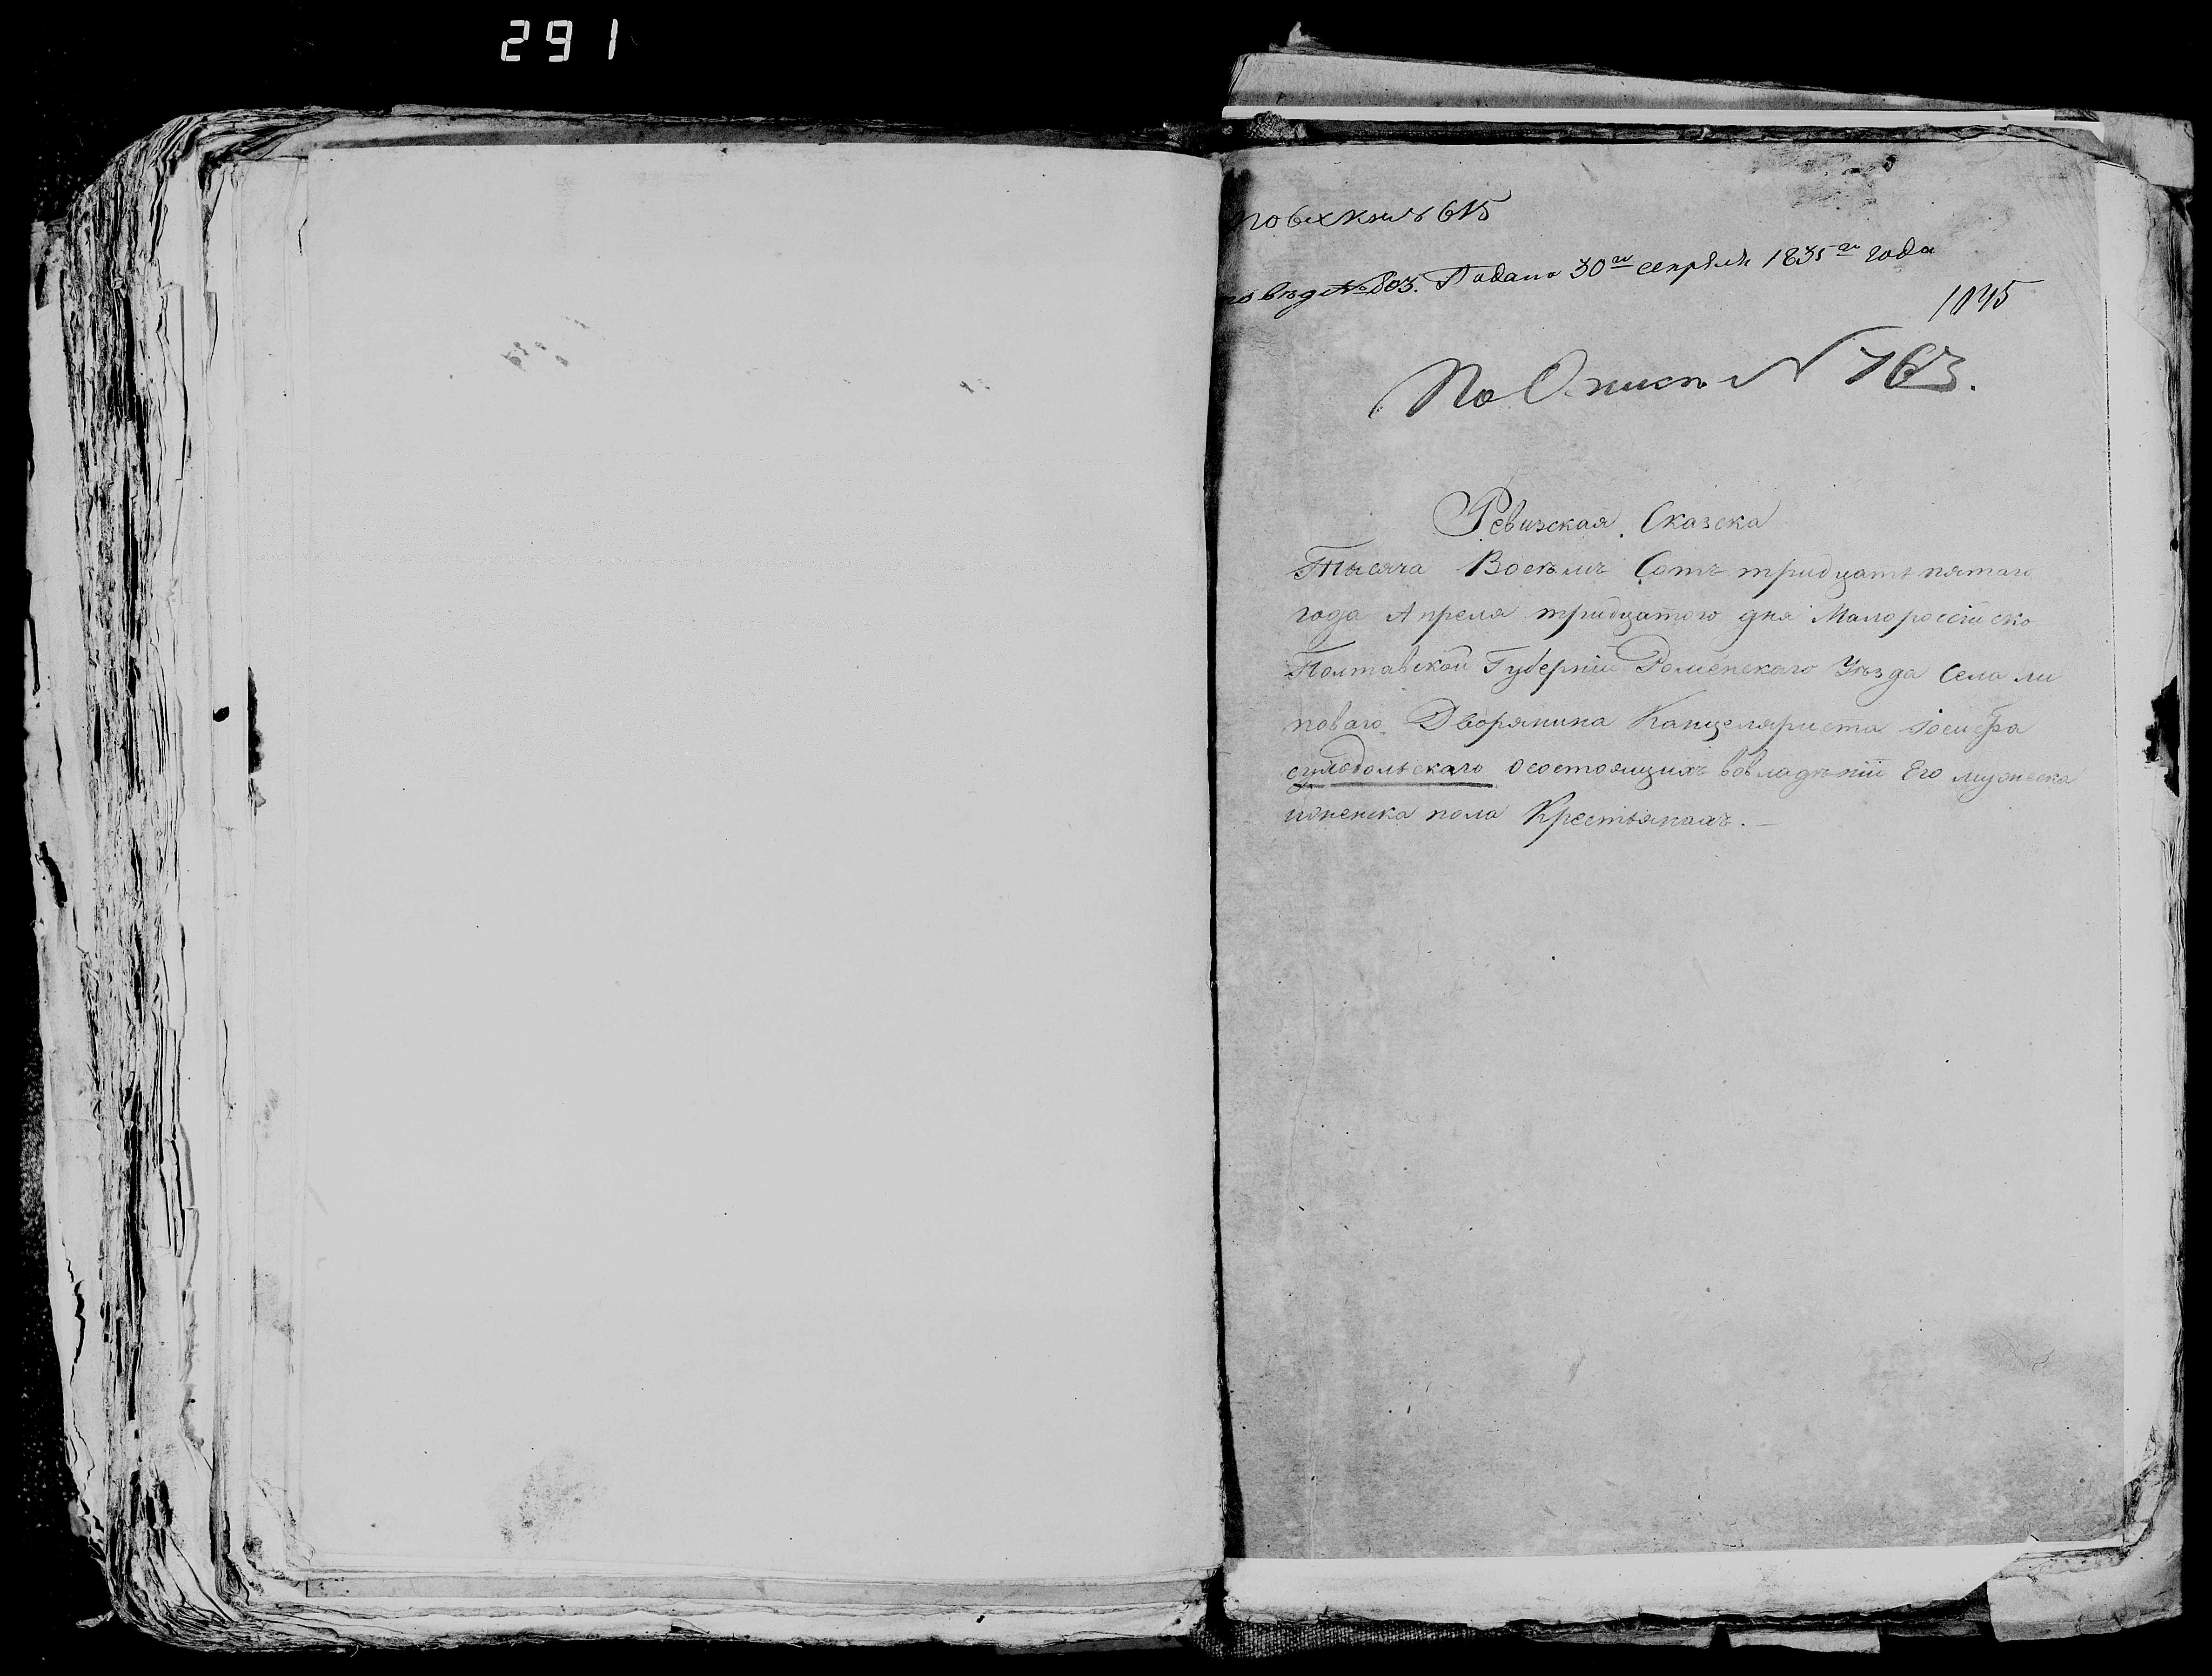 291
по вх книгѣ 615
по вѣд № 803. Подана 30го апрѣля 1835го года
1045
По Описи N 763.
Ревизская Сказска
Тысяча Восемъ Сотъ тридцать пятаго
года Апреля тридцатого дня Малоросiйско
Полтавской Губернiи Роменскаго Уѣзда Села ли
поваго Дворянина Канцеляриста Iосифа
сулодольскаго осостоящихъ вовладѣнiи Его мужеска
иженска пола Крестьянахъ.